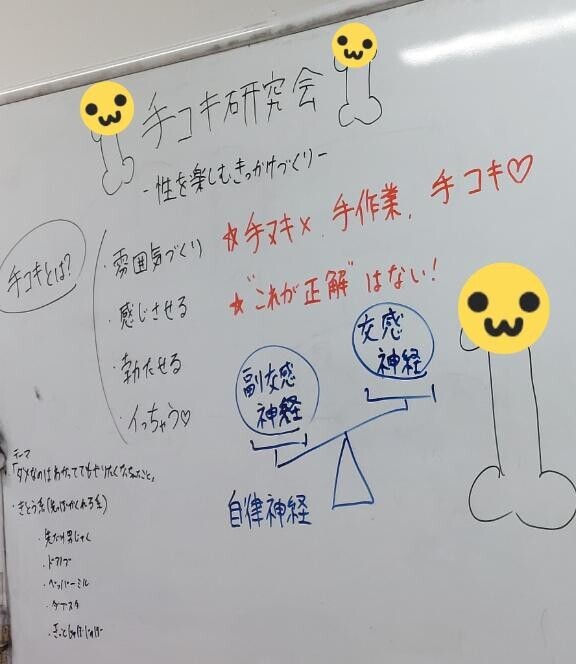 手コキ研究会
-性を楽しむきっかけづくり-
手コキとは?
・雰囲気づくり
・感じさせる
・勃たせる
・イっちゃう♡
☆手ヌキ×、手作業、手コキ♡
☆"これが正解"はない!
副交感
神経
交感
神経
自律神経
テーマ
「ダメなのはわかってても
・きとう系(先っぽかくれる系)
・ドアノブ
・ペッパーミル